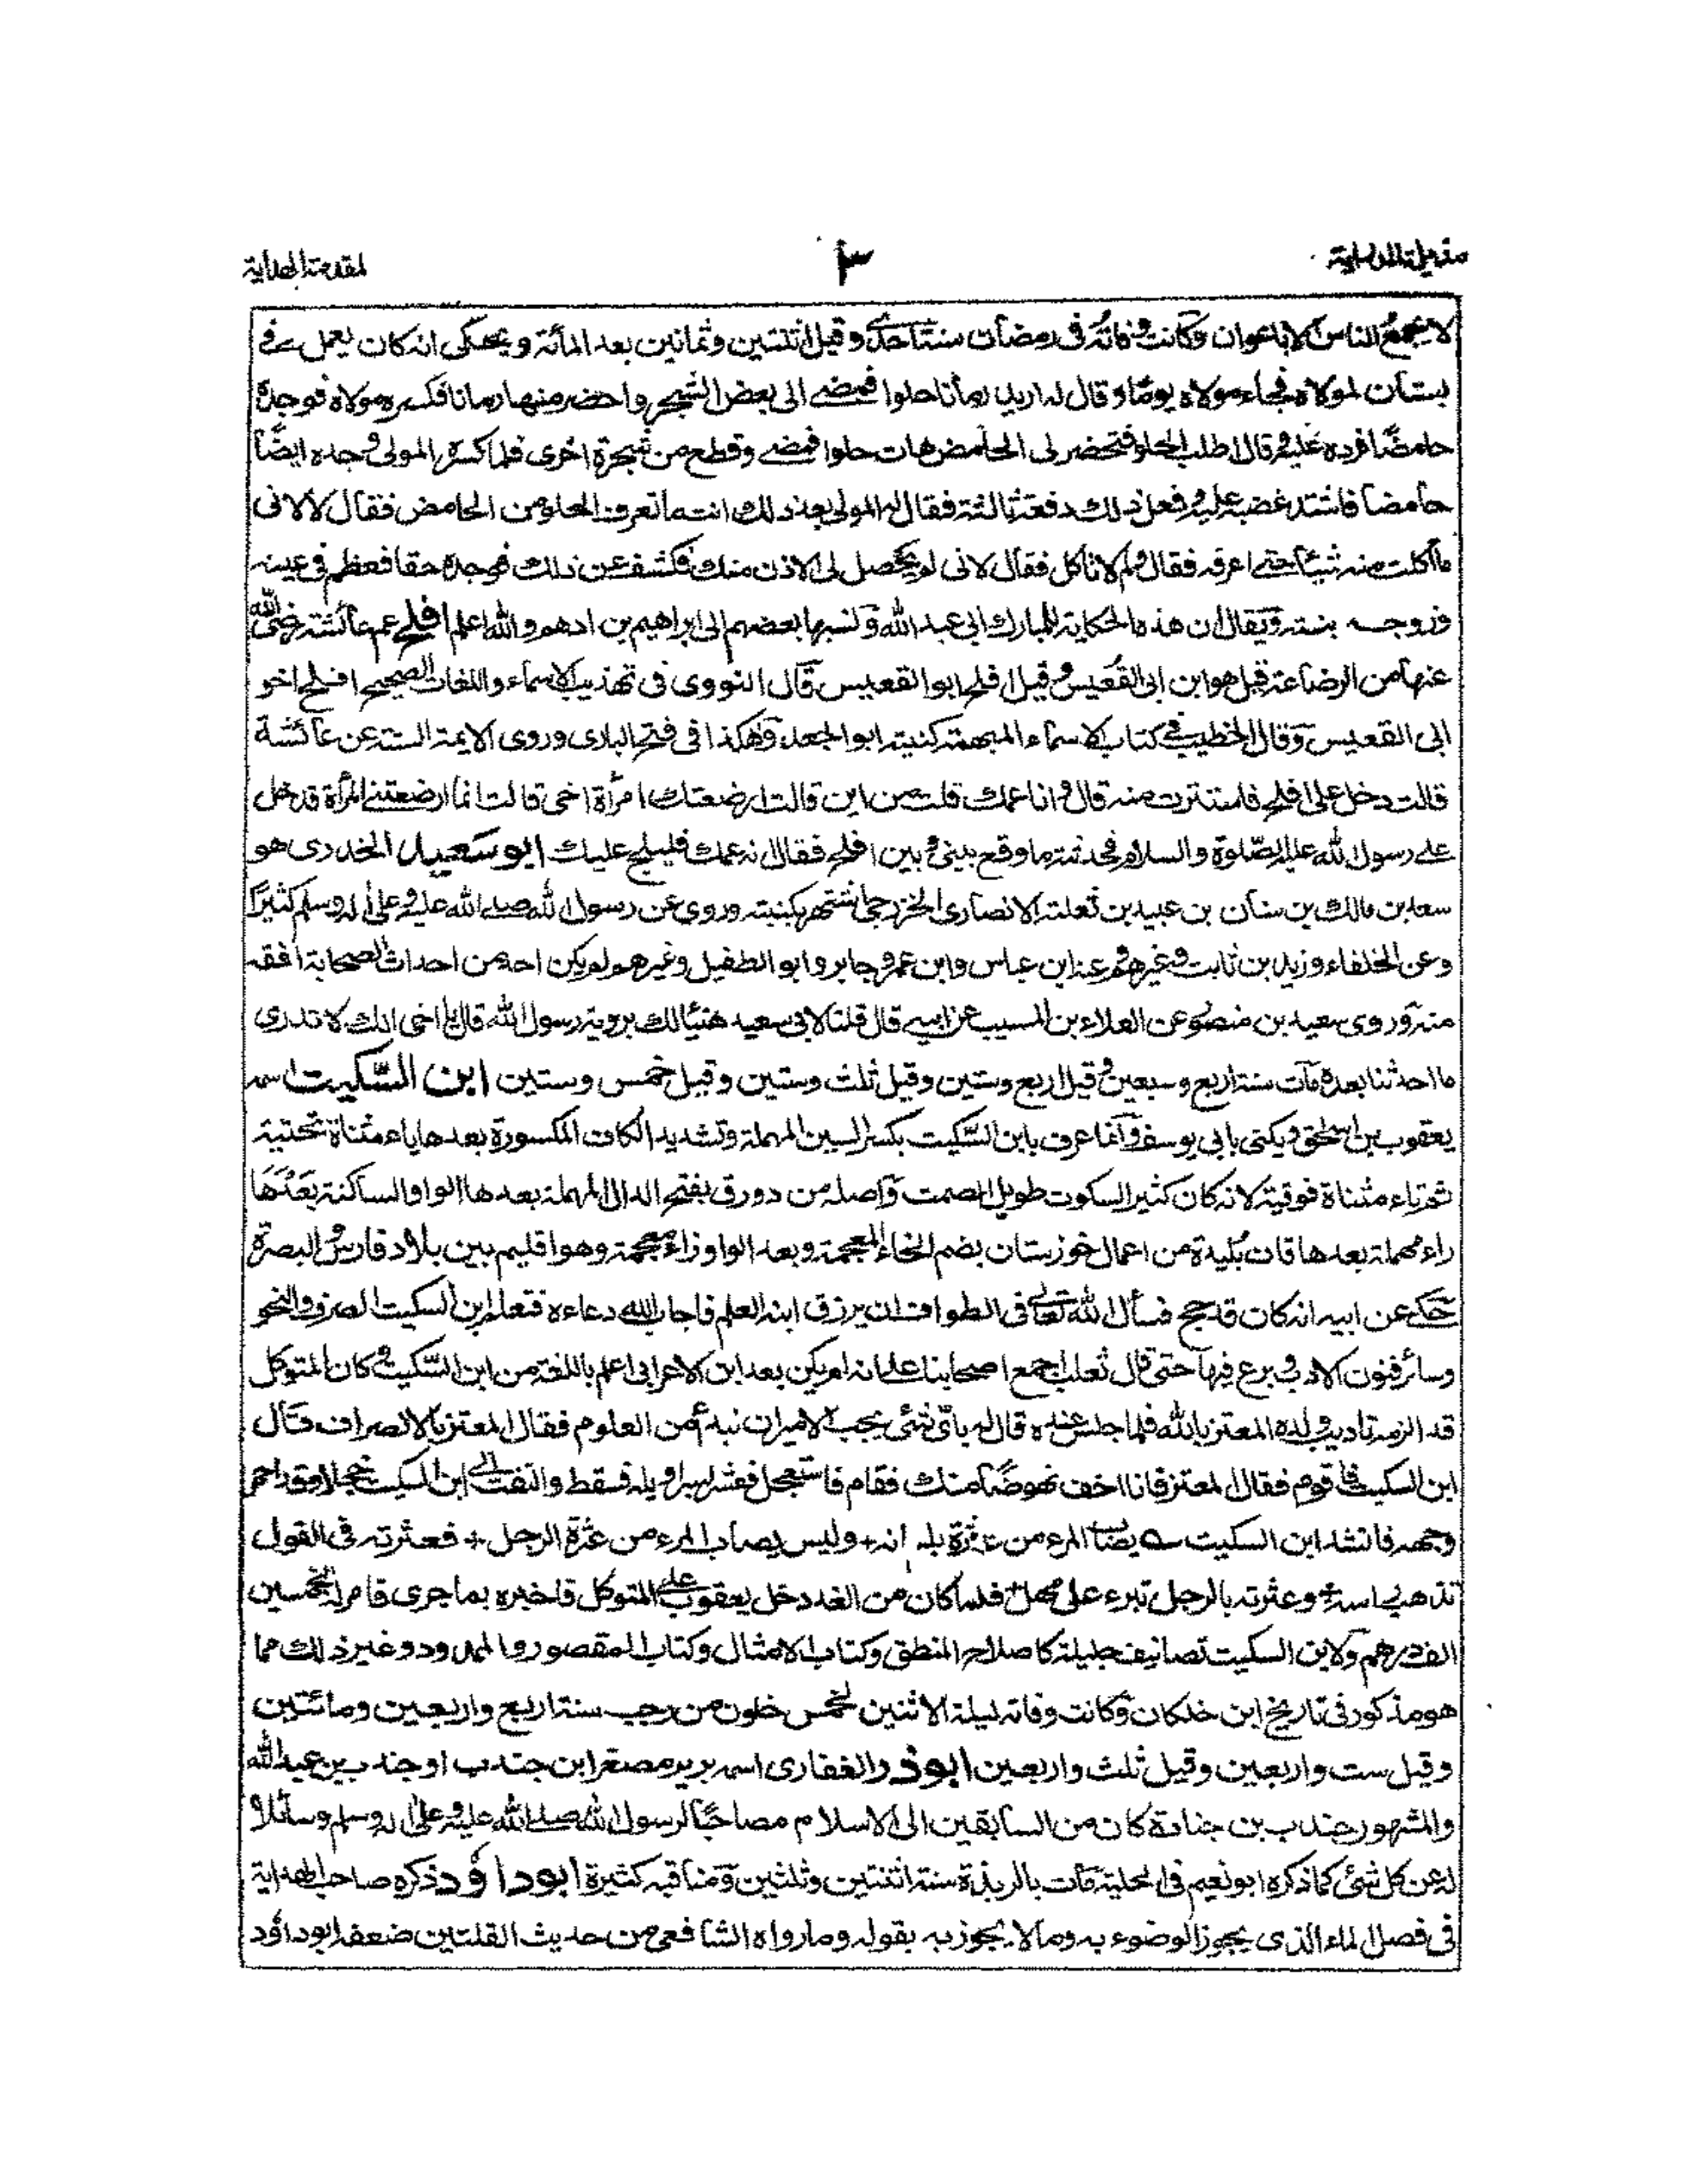 مذيلة الدراية
٣
لمقدمة الهداية
لا تجمع الناس الا باعوان وكانت وفاته فى رمضان سنة احدى وقيل اثنتين وثمانين بعد المائة ويحكى انه كان يعمل فى
بستان لمولاه فجاء مولاه يوما وقال له اريد رمانا حلوا فمضى الى بعض الشجر واحضر منها رمانا فكسره مولاه فوجده
حامضا فرده عليه وقال اطلب الحلو فتحضر لى الحامض هات حلوا فمضى وقطع من شجرة اخرى فلما كسره المولى وجده ايضًا
حامضا فاشتد غضبه عليه وفعل ذلك دفعة ثالثة فقال له المولى بعد ذلك انت ما تعرف الحلو من الحامض فقال لا لانى
ما اكلت منه شيئا حتى اعرفه فقال ولم لا تاكل فقال لانى لم يحصل لى الاذن منك فكشف عن ذلك فوجده حقا فعظم فى عينه
وزوجه بنته ويقال ان هذه الحكاية للمبارك ابى عبد الله ونسبها بعضهم الى ابراهيم بن ادهم والله اعلم افلح عم عائشة رضى الله
عنها من الرضاعة قيل هو ابن ابى القعيس وقيل افلح ابو القعيس قال النووى فى تهذيب الاسماء واللغات الصحيح افلح اخو
ابى القعيس وقال الخطيب فى كتاب الاسماء المبهمة كنيته ابو الجعد وهكذا فى فتح البارى وروى الايمة الستة عن عائشة
قالت دخل على افلح فاستترت منه قال وانا عمك قلت من اين قالت ارضعتك امرأة اخى قالت انما ارضعتنى المرأة قدخل
على رسول الله عليه الصلوة والسلام فحدثته ما وقع بينى وبين افلح فقال انه عمك فليلج عليك ابو سعيد الخدرى هو
سعد بن مالك بن سنان بن عبيد بن ثعلبة الانصارى الخزرجى اشتهر بكنيته وروى عن رسول الله صلى الله عليه وعلى اله وسلم كثيرًا
وعن الخلفاء وزيد بن ثابت وغيرهم وعنه ابن عباس وابن عمر وجابر وابو الطفيل وغيرهم ولم يكن احد من احداث الصحابة افقه
منه وروى سعيد بن منصور عن العلاء بن المسيب عن ابيه قال قلنا لابى سعيد هنيئا لك بروية رسول الله قال يا اخى انك لا تدرى
ما احدثنا بعده مات سنة اربع وسبعين وقيل اربع وستين وقيل ثلث وستين وقيل خمس وستين ابن السكيت اسمه
يعقوب بن اسحق ويكنى بابى يوسف وانما عرف بابن السكيت بكسر السين المهملة وتشديد الكاف المكسورة بعدها ياء مثناة تحتية
ثم تاء مثناة فوقية لانه كان كثير السكوت طويل الصمت واصله من دورق بفتح الدال المهملة بعدها الواو الساكنة بعدها
راء مهملة بعدها قاف بليدة من اعمال خوزستان بضم الخاء المعجمة وبعد الواو زاء معجمة وهو اقليم بين بلاد فارس والبصرة
حكى عن ابيه انه كان قد حج فسأل الله تعالى فى الطواف ان يرزق ابنه العلم فاجاب الله دعاءه فتعلم ابن السكيت الصرف والنحو
وسائر فنون الادب وبرع فيها حتى قال ثعلب اجمع اصحابنا على انه لم يكن بعد ابن الاعرابى اعلم باللغة من ابن السكيت وكان المتوكل
قد الزمه تاديب ولده المعتز بالله فلما جلس عنده قال له باى شئ يجب الامير ان نبدأ من العلوم فقال المعتز بالانصراف قال
ابن السكيت فاقوم فقال المعتز فانا اخف نهوضا منك فقام فاستعجل فعثر بسراويله فسقط والتفت الى ابن السكيت خجلا وقد احمر
وجهه فانشد ابن السكيت يصاب المرء من عثرة بلسانه + وليس يصاب المرء من عثرة الرجل + فعثرته فى القول
تذهب راسه + وعثرته بالرجل تبرء على مهل + فلما كان من الغد دخل يعقوب على المتوكل فاخبره بما جرى فامر له بخمسين
الف درهم ولابن السكيت تصانيف جليلة كاصلاح المنطق وكتاب الامثال وكتاب المقصور والممدود وغير ذلك مما
هو مذكور فى تاريخ ابن خلكان وكانت وفاته ليلة الاثنين لخمس خلون من رجب سنة اربع واربعين ومائتين
وقيل ست واربعين وقيل ثلث واربعين ابو ذر الغفارى اسمه برير مصغرا بن جندب او جندب بن عبد الله
والمشهور جندب بن جنادة كان من السابقين الى الاسلام مصاحبًا لرسول الله صلى الله عليه وعلى اله وسلم وسائلا
له عن كل شئ كما ذكره ابو نعيم فى الحلية مات بالربذة سنة اثنتين وثلثين ومناقبه كثيرة ابو داؤد ذكره صاحب الهداية
فى فصل الماء الذى يجوز الوضوء به وما لا يجوز به بقوله وما رواه الشافعى من حديث القلتين ضعفه ابو داؤد